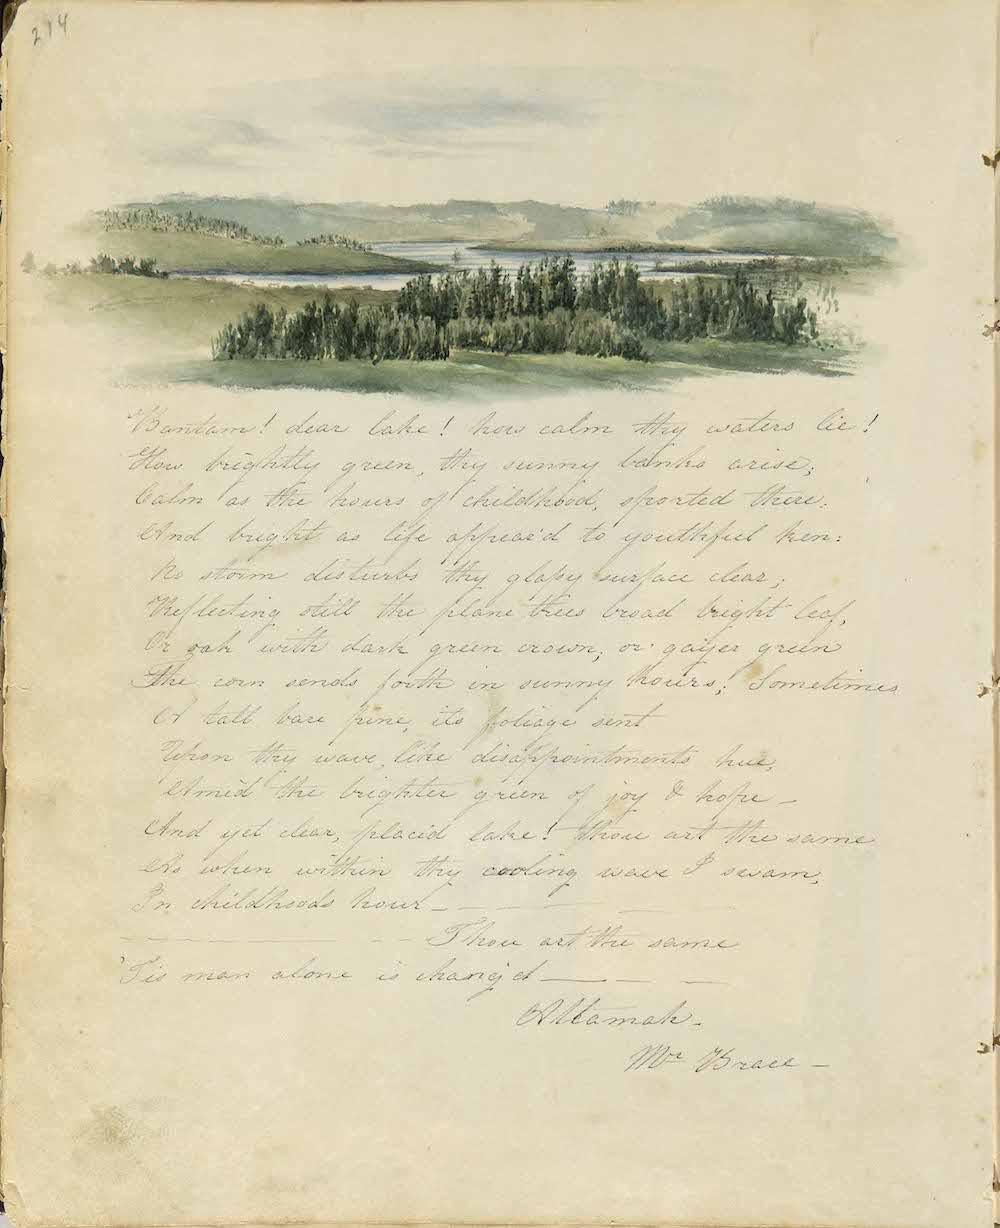 214
Bantam! dear lake! how calm thy waters lie!
How brightly green, thy sunny banks arise;
Calm as the hours of childhood, sported there.
And bright as life appear'd to youthful ken:
No storm disturbs thy glassy surface clear;
Reflecting still the plane trees broad bright leaf,
Or oak with dark green crown; or gayer green
The corn sends forth in sunny hours; Sometimes
A tall bare pine, its foliage sent
Upon thy wave, like disappointments hue,
Amid the brighter green of joy & hope –
And yet clear, placid lake! thou art the same
As when within thy cooling wave I swam,
In childhoods hour – – – –
– – – Thou art the same
'Tis man alone is chang'd – – –
Altamah –
Mr Brace –